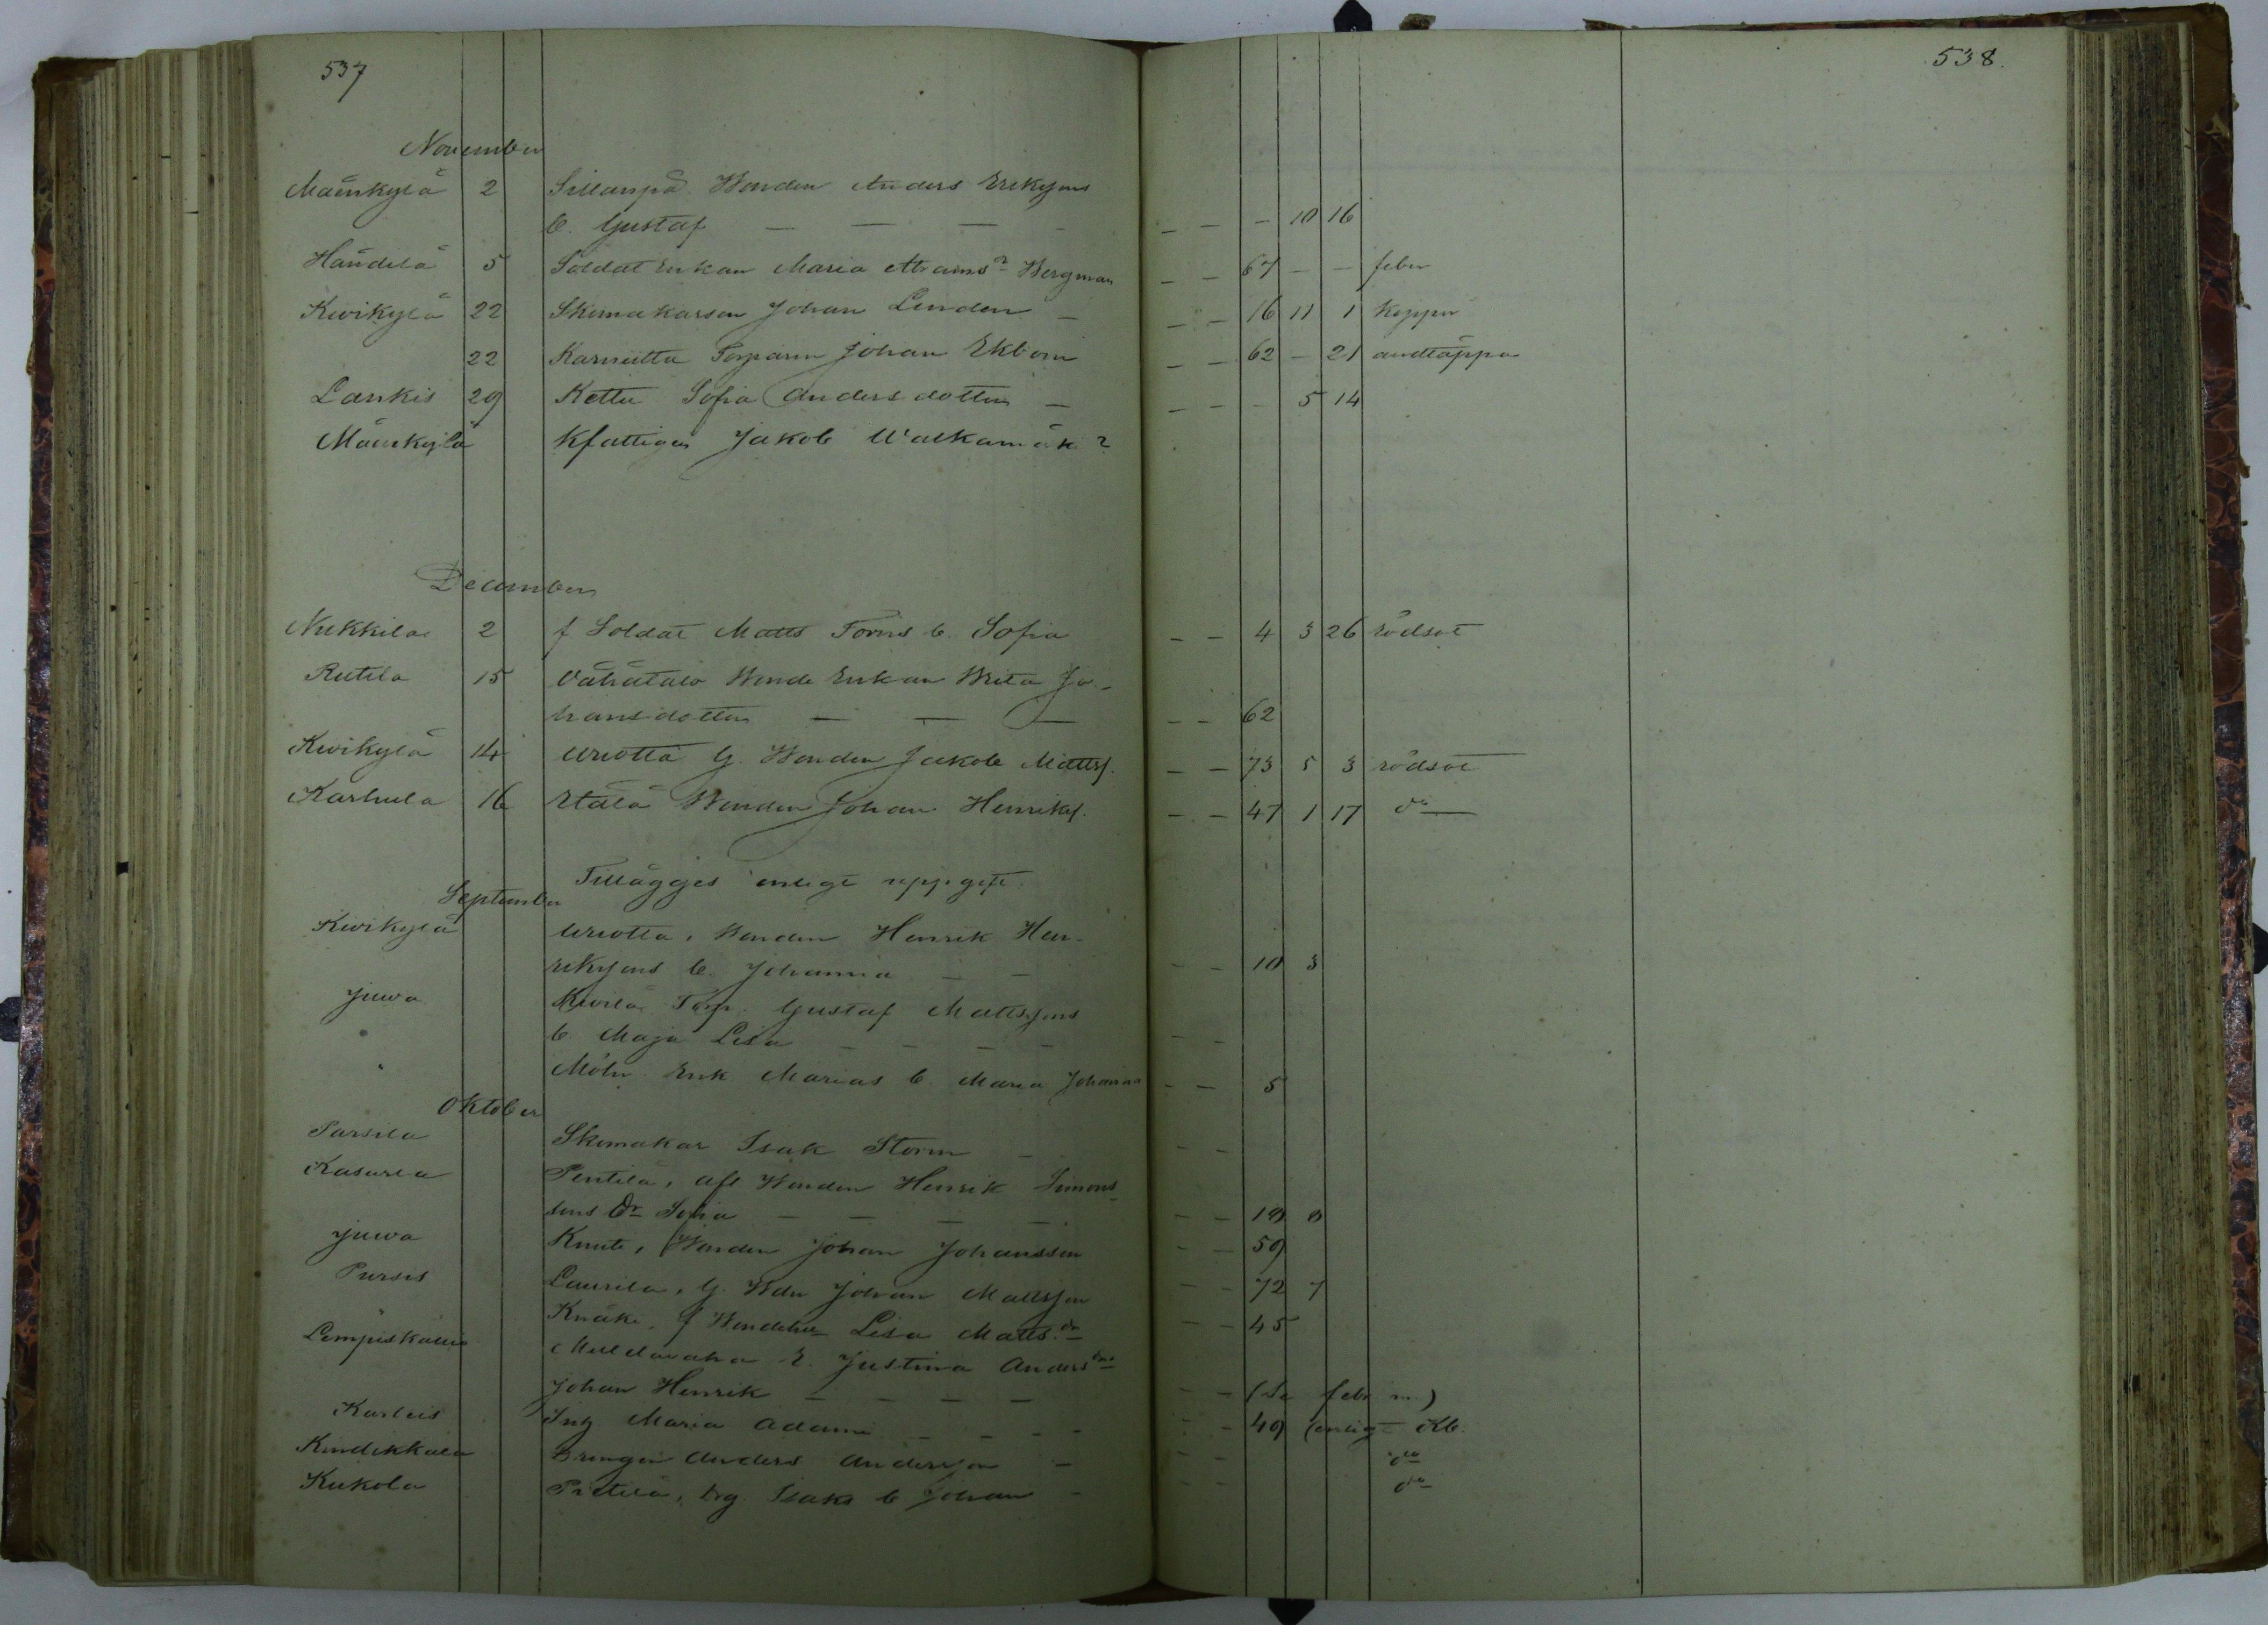 537
538.
November
Mäenkylä 2 Sillanpä Bonden Anders Eriksons
b. Gustaf — — — - - - - 10 16
Händelä 5 Soldat Enkan Maria Abramsdr Bergman - - 67 - - feber
Kivikylä 22 Skomakarson Johan Linden - - - 16 11 1 koppor
22 Torparen Johan Ekbom - - 62 - 21 andtäppa
Lankis 29 Kettu Sofia Andersdotter - - - - 5 14
Mäenkylä Kfattigen Jakob
December
Nukkila 2 f Soldat Matts Fornis b. Sofia - - 4 3 26 rödsot
Rutila 15 Vähätalo Bonde Enkan Brita Jo-
hansdotter — — — - - 62
Kivikylä 14 Uriotta G. Bonden Jakob Mattsf. - - 73 5 3 rödsot
Karhula 16 Etälä Bonden Johan Henriksf. - - 47 1 17 do
Tillägges enligt uppgift.
September
Kivikylä Uriotta, Bonden Henrik Hen-
riksons b. Johanna - - - - 10 3
Juva Kivilä Torp. Gustaf Mattssons
" b. Maja Lisa - - - - - -
" Möln. Erik Marias b. Maria Johanna - - 5
Oktober
Parsila Skomakar Isak Storm - - -
Kasarla Penttilä, Afl Bonden Henrik Simons-
sons dr Sofia — — — - - - 18 8
Juva Knuti, Bonden Johan Johansson - - 59
Pursis Laurila, G. Bdn Johan Mattsson - - 72 7
" Knäki, f Bondehu Lisa Mattsdr - - 45
Lempiskallio E. Justina Anders drs
Johan Henrik - - - - - - (Se febr m.)
Karleis Ing Maria Adami - - - - - - 49 (enligt Kb.
Kindikkala Drengen Anders Andersson - - - do
Kukola Pietilä, drg. Isaks b Johan - - - do